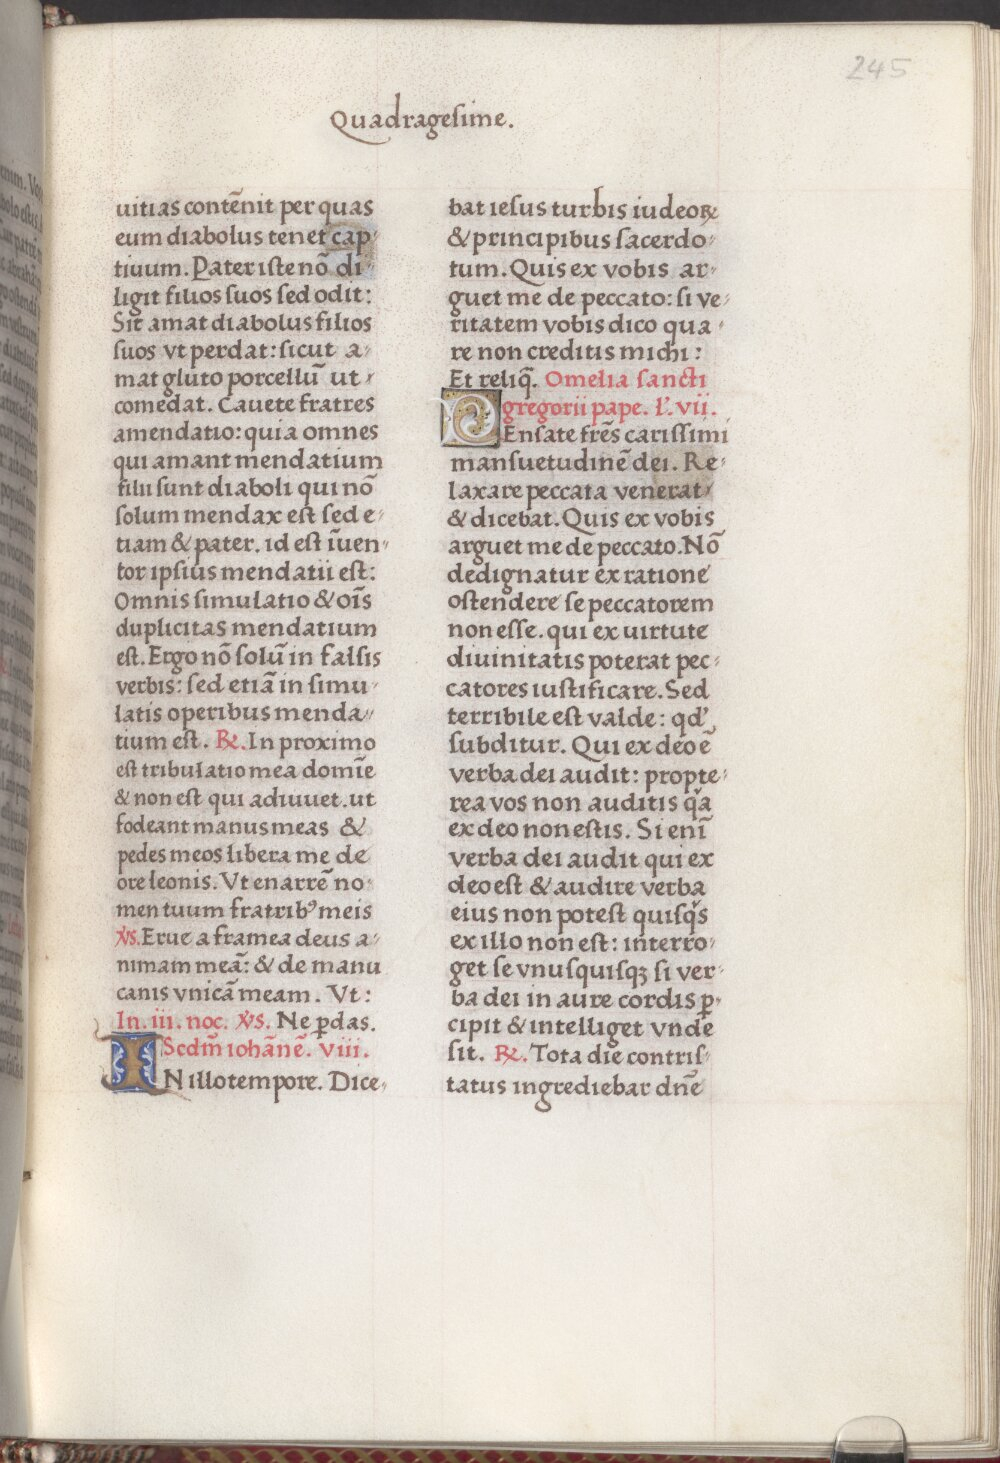 245
Quadragesime.
uitias contēnit per quas
eum diabolus tenet cap-
tiuum. Pater iste nō di-
ligit filios suos sed odit:
Sit amat diabolus filios
suos vt perdat: sicut a-
mat gluto porcellū ut
comedat. Cauete fratres
amendatio: quia omnes
qui amant mendatium
filii sunt diaboli qui nō
solum mendax est sed e-
tiam & pater. id est īuen-
tor ipsius mendatii est:
Omnis simulatio & oīs
duplicitas mendatium
est. Ergo nō solū in falsis
verbis: sed etiā in simu-
latis operibus menda-
tium est. ℟. In proximo
est tribulatio mea domīe
& non est qui adiuuet. ut
fodeant manus meas &
pedes meos libera me de
ore leonis. Vt enarrē no-
men tuum fratribꝰ meis
℣s. Erue a framea deus a-
nimam meā: & de manu
canis vnicā meam. Vt:
In. iii. noc. ℣s. Ne ꝑdas.
Scdm̄ iohānē. viii.
IN illo tempore. Dice-
bat iesus turbis iudeoꝝ
& principibus sacerdo-
tum. Quis ex vobis ar-
guet me de peccato: si ve-
ritatem vobis dico qua-
re non creditis michi:
Et reliq̄. Omelia sancti
gregorii pape. l'. vii.
PEnsate frēs carissimi
mansuetudinē dei. Re-
laxare peccata venerat
& dicebat. Quis ex vobis
arguet me de peccato. Nō
dedignatur ex ratione
ostendere se peccatorem
non esse. qui ex uirtute
diuinitatis poterat pec-
catores iustificare. Sed
terribile est valde: qd'
subditur. Qui ex deo ē
verba dei audit: propte-
rea vos non auditis qa
ex deo non estis. Si enī
verba dei audit qui ex
deo est & audire verba
eius non potest quisqs
ex illo non est: interro-
get se vnusquisqꝫ si ver-
ba dei in aure cordis ꝑ-
cipit & intelliget vnde
sit. ℟. Tota die contris-
tatus ingrediebar dnē